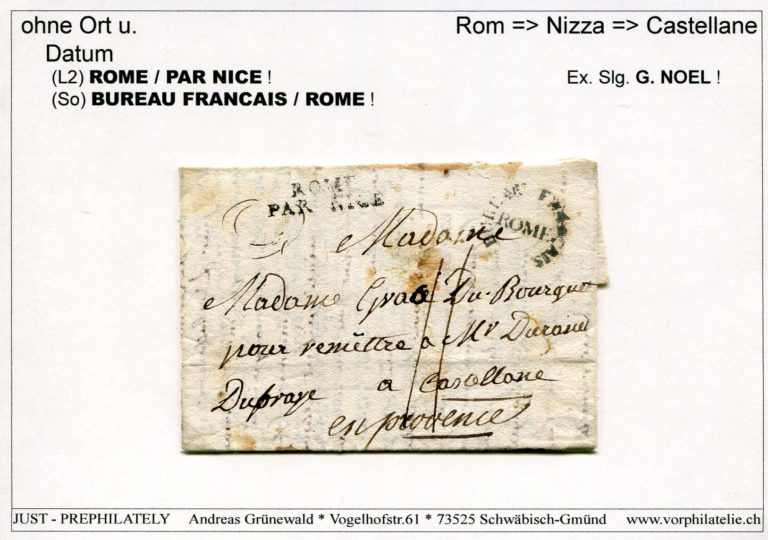 ohne Ort u.
Datum
Rom => Nizza => Castellane
(L2) ROME / PAR NICE !
(So) BUREAU FRANCAIS / ROME !
Ex. Slg. G. NOEL !
ROME
PAR NICE
BUREAU FRANCAIS
ROME
Madame
Madame Grace Du Bourguet
pour remettre a Mr Durand
Dupraye a Castellane
en provence
JUST - PREPHILATELY Andreas Grünewald * Vogelhofstr.61 * 73525 Schwäbisch-Gmünd www.vorphilatelie.ch